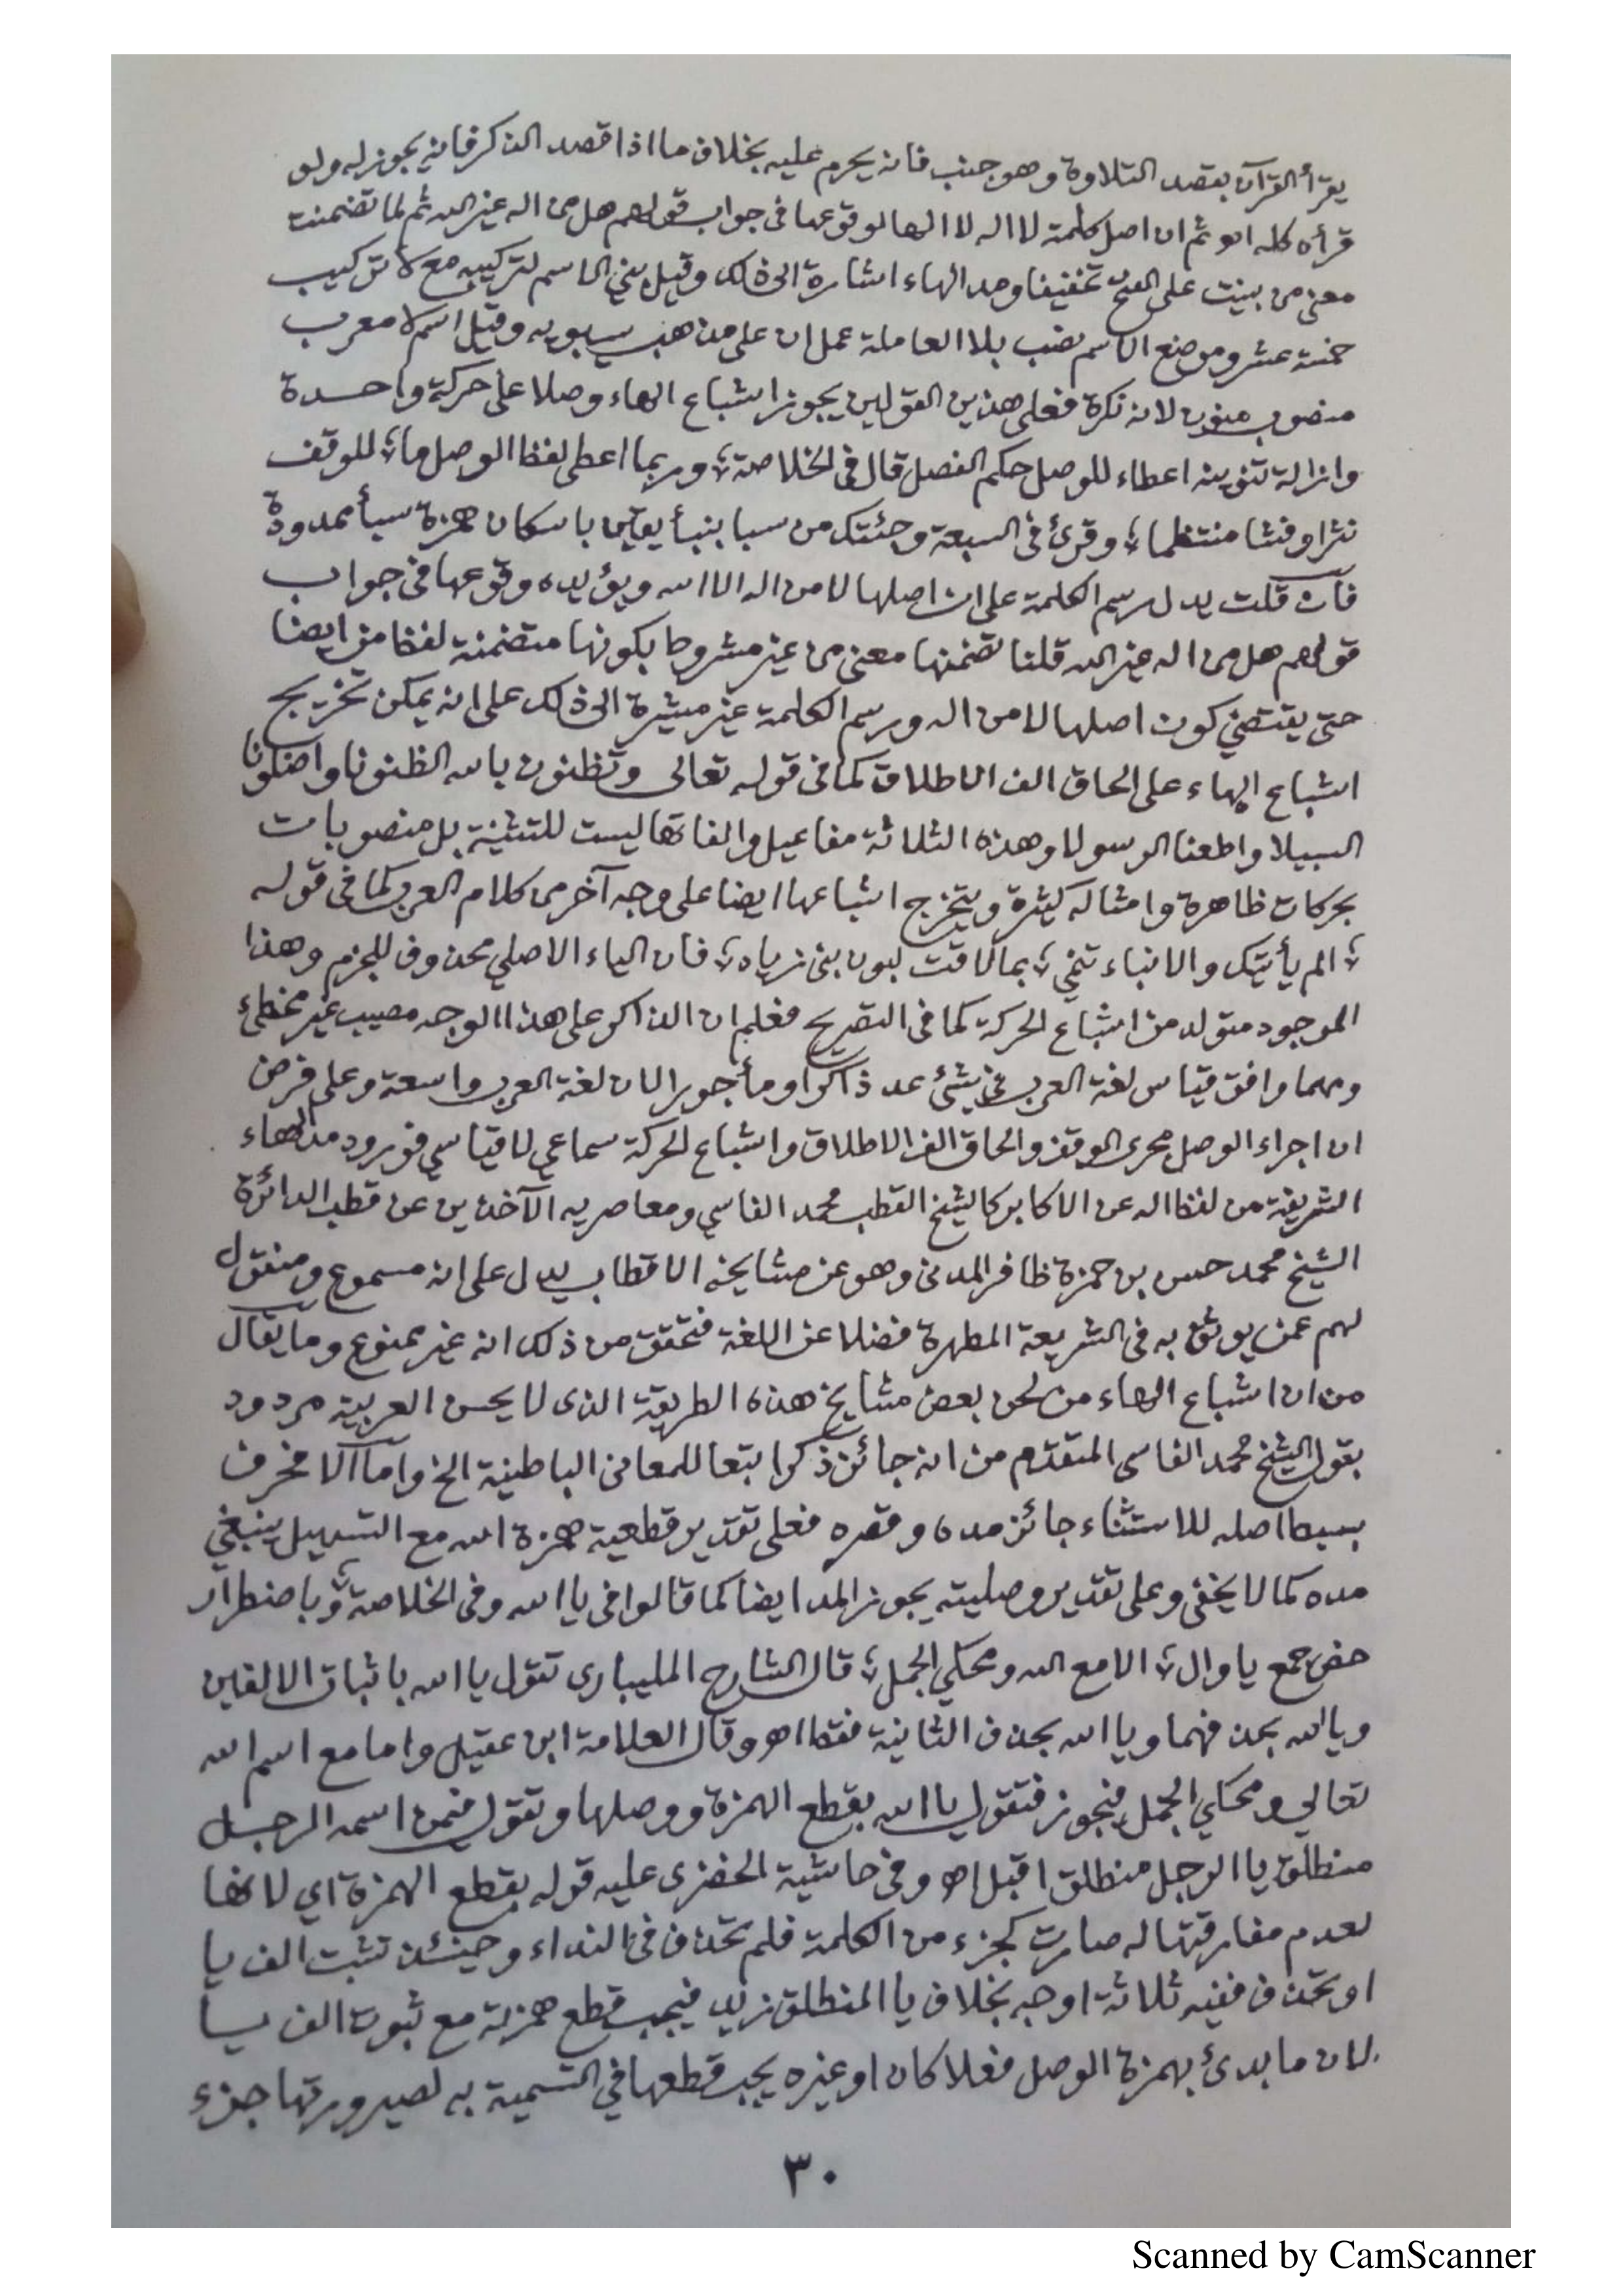 يقرأ القرآن بقصد التلاوة وهو جنب فانه يحرم عليه بخلاف ما اذا قصد الذكر فانه يجوز له ولو
قرأه كله اهو ثم ان اصل كلمة لا اله لا الها لوقوعها في جواب قولهم هل من اله غير الله ثم لما تضمنت
معنى من بنيت على الفتح تخفيفا ومد الهاء اشارة الى ذلك وقيل بني الاسم لتركيبه مع لا تركيب
خمسة عشر وموضع الاسم نصب بلا العاملة عمل ان على مذهب سيبويه وقيل اسم لا معرب
منصوب منون لانه نكرة فعلى هذين القولين يجوز اشباع الهاء وصلا على حركة واحدة
وازالة تنوينه اعطاء للوصل حكم الفصل قال في الخلاصة ؛ وربما اعطى لفظ الوصل ما ؛ للوقف
نثرا وفشا منتظما ؛ وقرئ في السبعة وجئتك من سبا بنبأ يقين باسكان همزة سبأ ممدودة
فان قلت يدل رسم الكلمة على ان اصلها لا من اله الا الله ويؤيده وقوعها في جواب
قولهم هل من اله غير الله قلنا تضمنها معنى من غير مشروط بكونها متضمنة لفظ من ايضا
حتى يقتضي كون اصلها لا من اله ورسم الكلمة غير مشيرة الى ذلك على انه يمكن تخريج
اشباع الهاء على الحاق الف الاطلاق كما في قوله تعالى وتظنون بالله الظنونا واضلونا
السبيلا واطعنا الرسولا وهذه الثلاثة مفاعيل والفاتها ليست للتثنية بل منصوبات
بحركات ظاهرة وامثاله كثيرة ويتخرج اشباعها ايضا على وجه آخر من كلام العرب كما في قوله
؛ الم يأتيك والانباء تنمي ؛ بما لاقت لبون بني زياد ؛ فان الياء الاصلي محذوف للجزم وهذا
الموجود متولد من اشباع الحركة كما في التصريح فعلم ان الذاكر على هذا الوجه مصيب غير مخطئ
ومهما وافق قياس لغة العرب في شئ عد ذاكرا ومأجورا لان لغة العرب واسعة وعلى فرض
ان اجراء الوصل مجرى الوقف والحاق الف الاطلاق واشباع الحركة سماعي لا قياسي فورود مد الهاء
الشريفة من لفظ اله عن الاكابر كالشيخ القطب محمد الفاسي ومعاصريه الآخذين عن قطب الدائرة
الشيخ محمد حسن بن حمزة ظافر المدني وهو عن مشايخه الاقطاب يدل على انه مسموع ومنقول
لهم عمن يوثق به في الشريعة المطهرة فضلا عن اللغة فتحقق من ذلك انه غير ممنوع وما يقال
من ان اشباع الهاء من لحن بعض مشايخ هذه الطريقة الذى لا يحسن العربية مردود
بقول الشيخ محمد الفاسي المتقدم من انه جائز ذكرا تبعا للمعاني الباطينية الخ واما الا فحرف
بسيط اصله للاستثناء جائز مده وقصره فعلى تقدير قطعية همزة الله مع التسهيل ينبغي
مده كما لا يخفى وعلى تقدير وصليته يجوز المد ايضا كما قالوا في يا الله وفي الخلاصة ؛ وباضطرار
خص جمع يا وال ؛ الا مع الله ومحكي الجمل ؛ قال الشارح المليباري تقول يا الله باثبات الالفين
ويالله بحذفهما ويا الله بحذف الثانية فقط اهو وقال العلامة ابن عقيل واما مع اسم الله
تعالى ومحكي الجمل فيجوز فتقول يا الله بقطع الهمزة ووصلها وتقول فيمن اسمه الرجل
منطلق يا الرجل منطلق اقبل اهو وفي حاشية الخضرى عليه قوله بقطع الهمزة اي لانها
لعدم مفارقتها له صارت كجزء من الكلمة فلم تحذف في النداء وحينئذ تثبت الف يا
او تحذف ففيه ثلاثة اوجه بخلاف يا المنطلق زيد فيجب قطع همزته مع ثبوت الف يا
لان ما بدئ بهمزة الوصل فعلا كان او غيره يجب قطعها في التسمية به لصيرورتها جزء
٣٠
Scanned by CamScanner